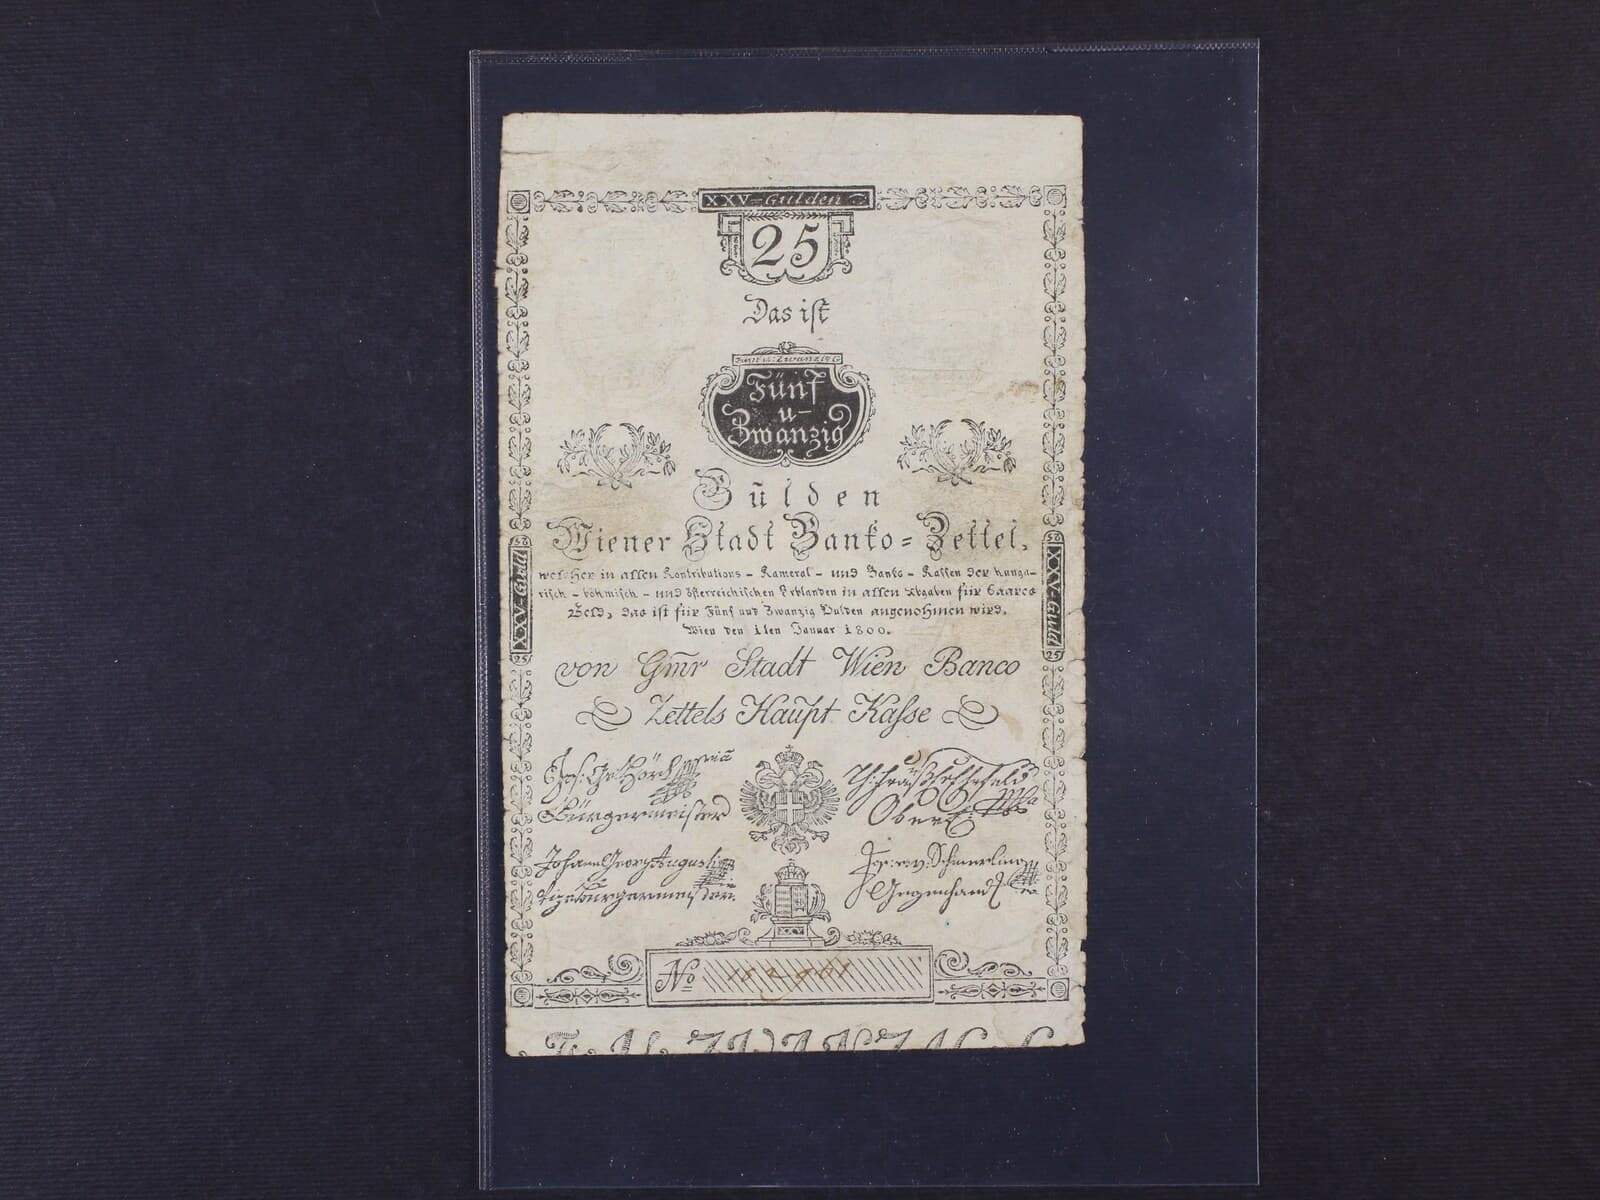 XXV-Gulden
25
Das ist
Fünf u: Zwanzig G
Fünf
u-
Zwanzig
Gulden
Wiener Stadt Banko=Zettel,
welcher in allen Kontributions - Kameral - und Banko - Kassen der hunga-
risch - böhmisch - und österreichischen Erblanden in allen Abgaben für baares
Geld, das ist für Fünf und Zwanzig Gulden angenohmen wird.
Wien den 1ten Januar 1800.
XXV-Guld
25
XXV-Guld
25
von Gmr Stadt Wien Banco
Zettels Haupt Kasse
Bürgermeister
Johann Georg Augusti
Vizebürgermeister.
v: Schmerling
Gegenhand
XXV
No